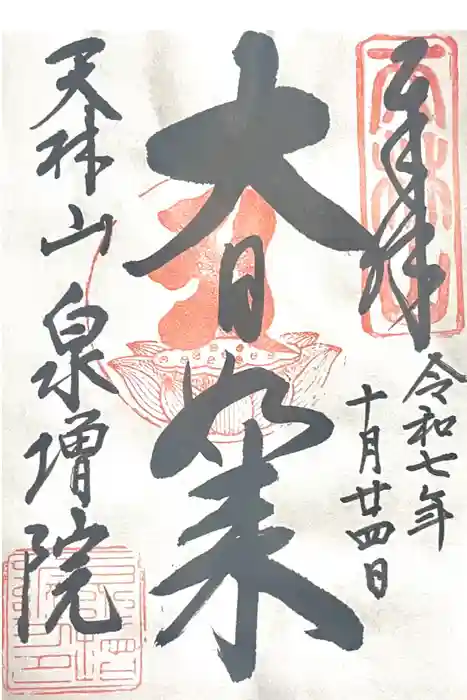 奉拝
令和七年
十月廿四日
大日如来
天林山泉増院